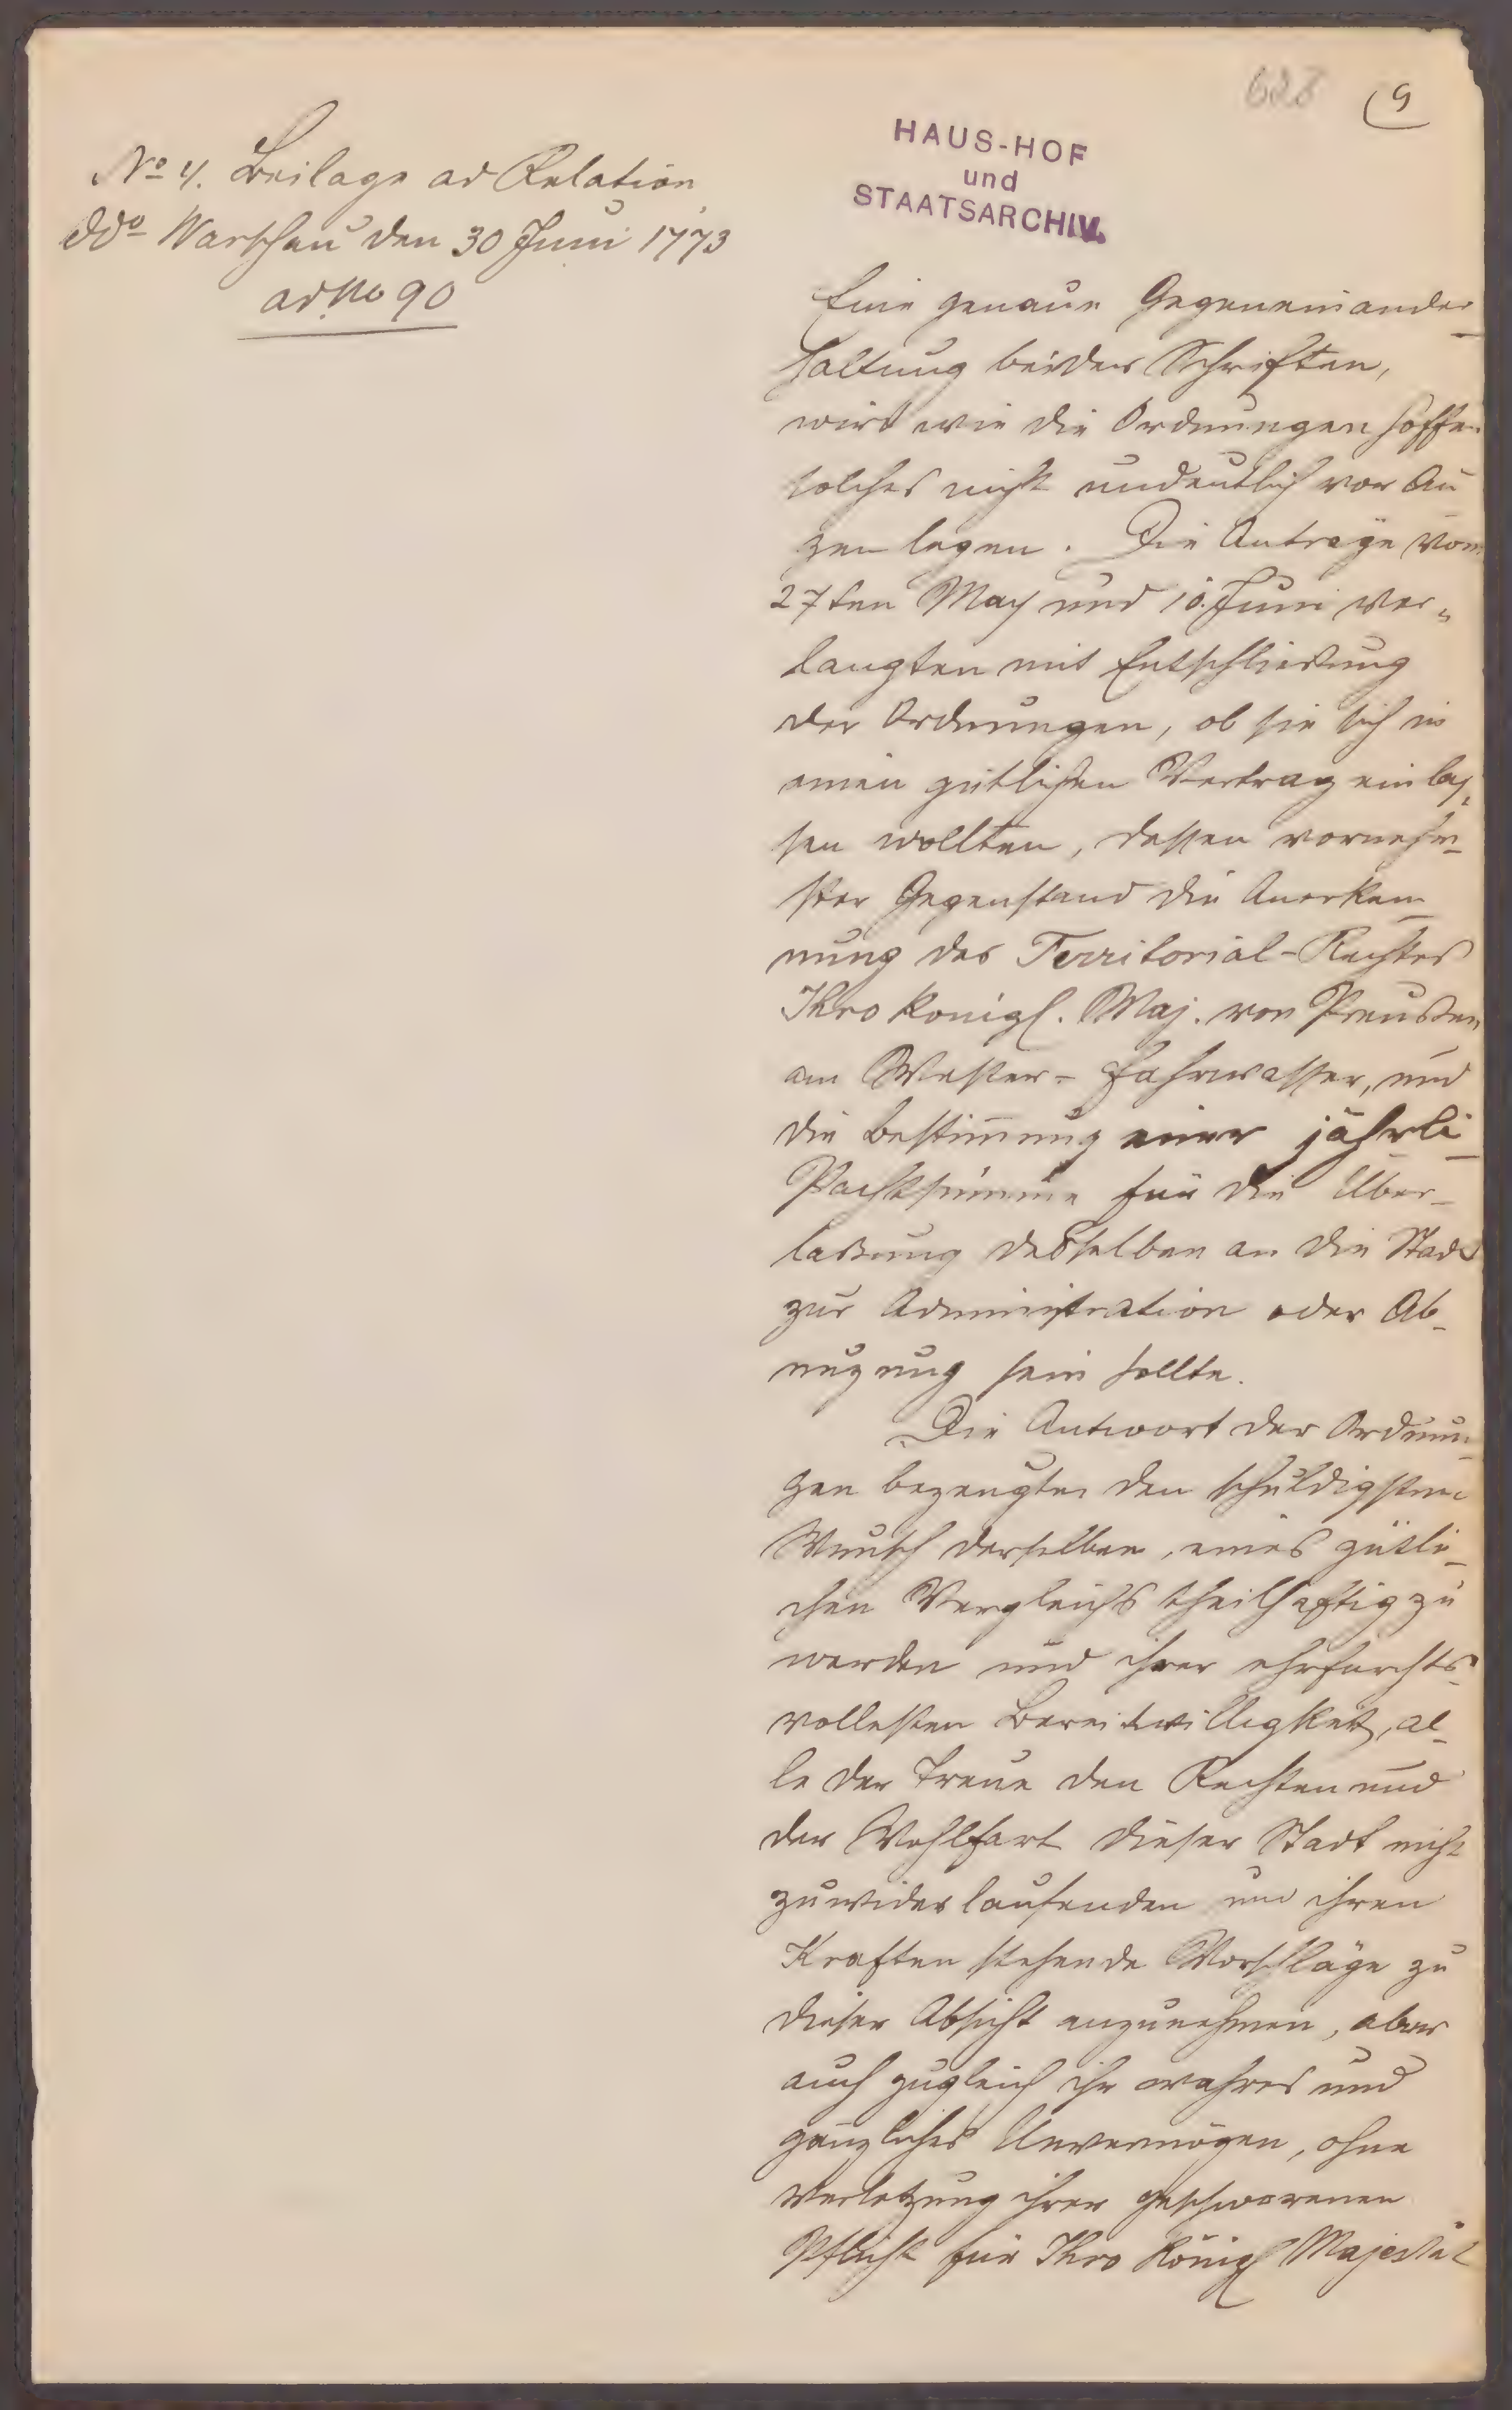 628 9
HAUS-HOF
und
STAATSARCHIV.
No 4. Beilage ad Relation
ddo Warschau den 30 Juni 1773
ad No 90
Eine genaue Gegeneinander
haltung beider Schriften,
wird wie die Ordnungen hoffen
solches nicht undeutlich vor Au
gen legen. Die Anträge vom
27ten May und 10. Juni ver„
langten mit Entschließung
der Ordnungen, ob sie sich in
einen gütlichen Vertrag einlas„
sen wollten, dessen vornehm-
ster Gegenstand die Anerken-
nung des Territorial-Rechtes
Ihro königl. Maj. von Preußen
am Wester-Fahrwasser, und
die Bestimmung einer jährli-
Pachtsumme für die Über-
laßung desselben an die Stadt
zur Administration oder Ab-
nuzung sein sollte.
Die Antwort der Ordnun-
gen bezeugten den schuldigsten
Wunsch derselben, eines gütli-
chen Vergleichs theilhaftig zu
werden und ihrer ehrfurchts-
vollesten Bereitwilligkeit, al-
le der Treue den Rechten und
der Wohlfart dieser Stadt nicht
zuwider laufenden und ihren
Kraften stehende Vorschläge zu
dieser Absicht anzunehmen, aber
auch zugleich ihr wahres und
gänzliches Unvermögen, ohne
Verletzung ihrer geschworenen
Pflicht für Ihro Königl Majestät